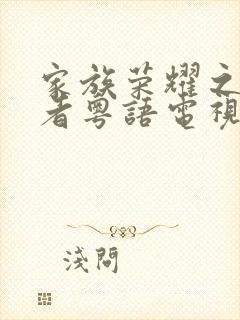 家族荣耀之
者粤語電視
淺問